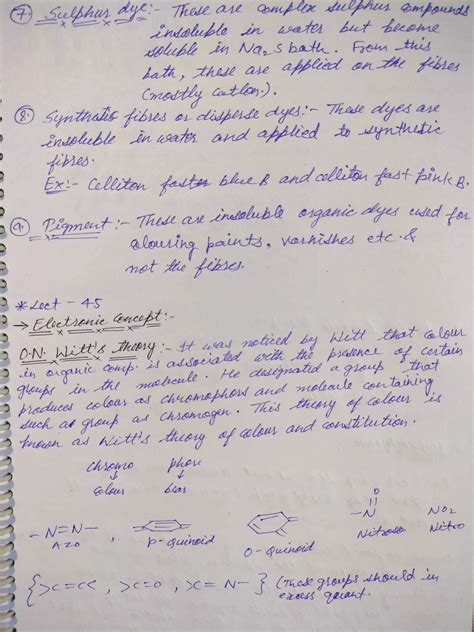 7) Sulphur dye:- These are complex sulphur compounds
insoluble in water but become
soluble in Na2S bath. From this
bath, these are applied on the fibres
(mostly cotton).
8. Synthatic fibres or disperse dyes:- These dyes are
insoluble in water and applied to synthetic
fibres.
Ex:- Celliton faster blue B and celliton fast pink B.
9. Pigment:- These are insoluble organic dyes used for
colouring paints, varnishes etc. &
not the fibres.
* Lect - 45
→ Electronic concept:-
O.N. Witt's theory:- It was noticed by Witt that colour
in organic comp. is associated with the presence of certain
groups in the molecule. He designated a group, that
produces colour as chromophors and molecule containing
such as group as chromogen. This theory of colour is
known as Witt's theory of colour and constitution.
Chromo phore
↓ ↓
Colour bear
-N=N- , -N=O NO2
Azo P-Quinoid O-Quinoid Nitroso Nitro
{>C=C<, >C=O, >C=N-} (These groups should in
excess